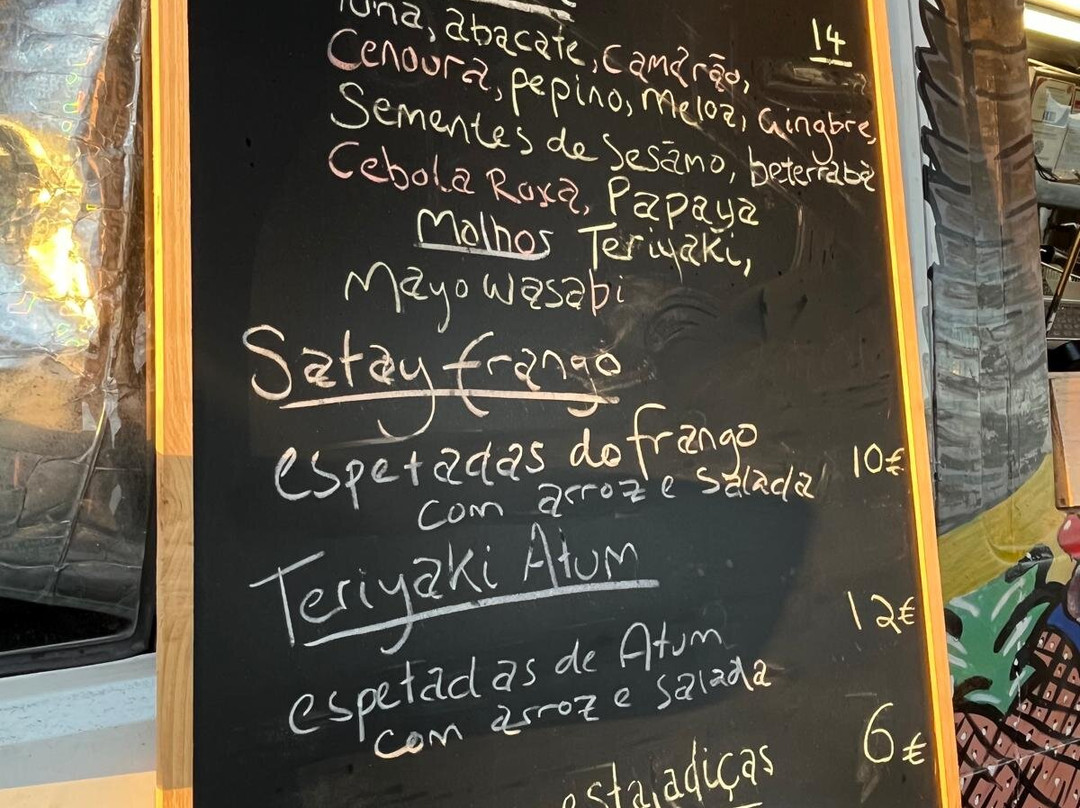 Tuna, abacate, camarão,
14
Cenoura, pepino, meloa, Gingbre,
Sementes de Sesāmo, beterraba
Cebola Roxa, Papaya
Molhos Teriyaki,
Mayo wasabi
Satay frango
espetadas do frango 10€
com arroz e salada
Teriyaki Atum
espetadas de Atum 12€
com arroz e salada
6€